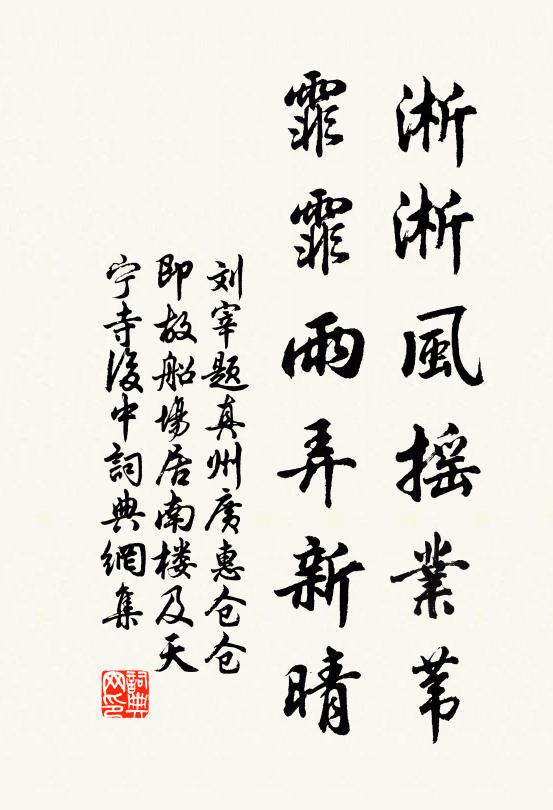 淅淅風摇業苇
霏霏雨弄新晴
刘宰题真州廣惠仓仓
即故船場居南楼及天
宁寺後中詞典網集
詞典网印